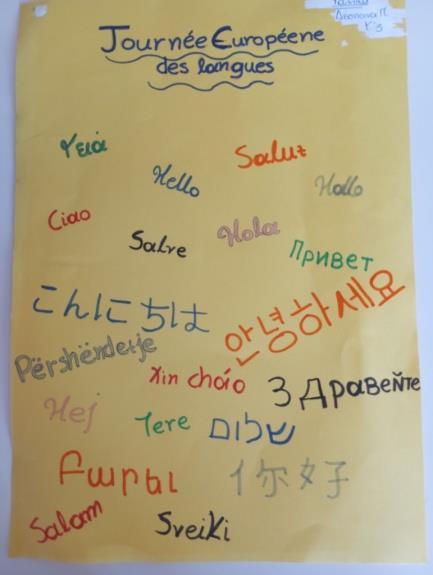 Δέσποινα Π.
Journée Européene
des langues
Γειά
Saluz
Hello
Hallo
Ciao
Hola
Salve
Привет
こんにちは
안녕하세요
Përshëndetje
Xin chảo
Здравейте
Hej
Tere
שלום
Բարև
你好
Salam
Sveiki